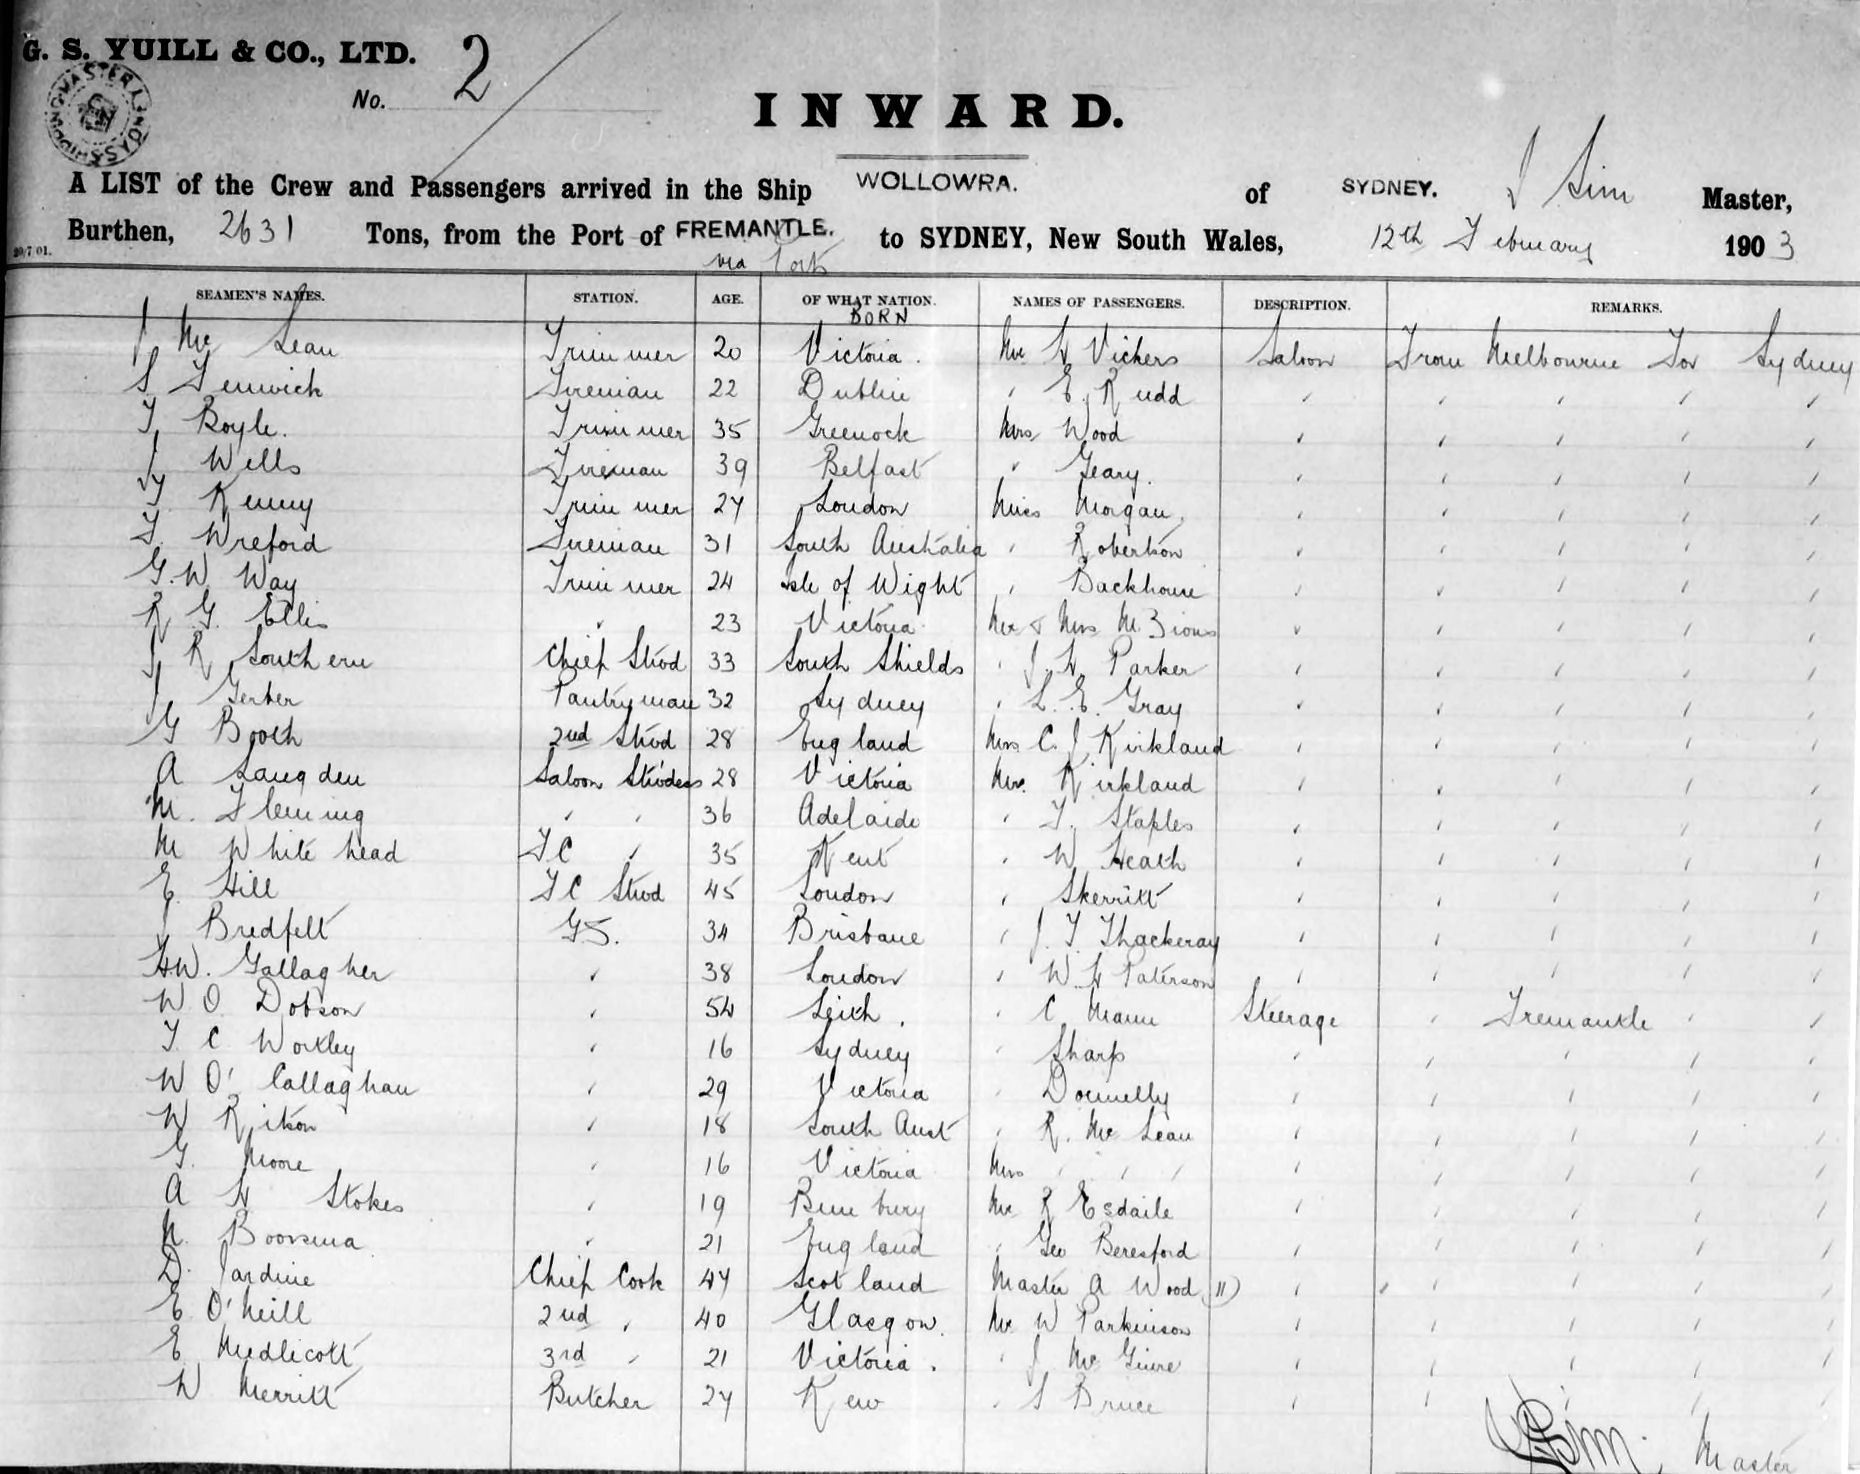 G. S. YUILL & CO., LTD.
No. 2
INWARD.
A LIST of the Crew and Passengers arrived in the Ship WOLLOWRA. of SYDNEY. J Sim Master,
Burthen, 2631 Tons, from the Port of FREMANTLE. to SYDNEY, New South Wales, 12th February 1903
20/7/01. via Ports
SEAMEN'S NAMES. STATION. AGE. OF WHAT NATION. NAMES OF PASSENGERS. DESCRIPTION. REMARKS.
BORN
J Mc Lean Trimmer 20 Victoria. Mr H Vickers Saloon From Melbourne For Sydney
S Fenwick Fireman 22 Dublin " E. Rudd " " " " "
T Boyle. Trimmer 35 Greenock Mrs Wood " " " " "
J Wells Fireman 39 Belfast " Geary. " " " " "
T. Kenny Trimmer 27 London Miss Morgan. " " " " "
T. Wreford Fireman 31 South Australia " Robertson " " " " "
G. W Way Trimmer 24 Isle of Wight " Backhouse " " " " "
R G. Ellis " 23 Victoria Mr & Mrs M. Zions " " " " "
J R Southern Chief Stwd 33 South Shields " J. H. Parker " " " " "
J Gerber Pantryman 32 Sydney " L. E. Gray " " " " "
G Booth 2nd Stwd 28 England Mrs C. J Kirkland " " " " "
A Langden Saloon Stwdess 28 Victoria Mr. Kirkland " " " "
M. Fleming " " 36 Adelaide " T. Staples " " " " "
M Whitehead FC " 35 Kent " W Heath " " " " "
E. Hill FC Stwd 45 London " Skerritt " " " " "
J Bredfelt GS. 34 Brisbane " J. T. Thackeray " " " " "
HW. Gallagher " 38 London " W. H Paterson " " " " "
W O. Dobson " 54 Leith. " C Mann Steerage " Fremantle " "
T. C Workley " 16 Sydney " Sharp " " " " "
W O'Callaghan " 29 Victoria " Donnelly " " " " "
W Ritson " 18 South Aust " R. Mc Lean " " " " "
G. Moore " 16 Victoria Mrs " " " " " " " "
A H Stokes " 19 Bunbury Mr R Esdaile " " " " "
N. Boorsma " 21 England " Geo Beresford " " " " "
D. Jardine Chief Cook 47 Scotland Master A Wood (11) " " " " "
E. O'Neill 2nd " 40 Glasgow. Mr W Parkinson " " " " "
E. Medlicott 3rd " 21 Victoria. " J Mc Guire " " " " "
W Merritt Butcher 27 Kew " S Bruce " " " " "
J Sim. Master